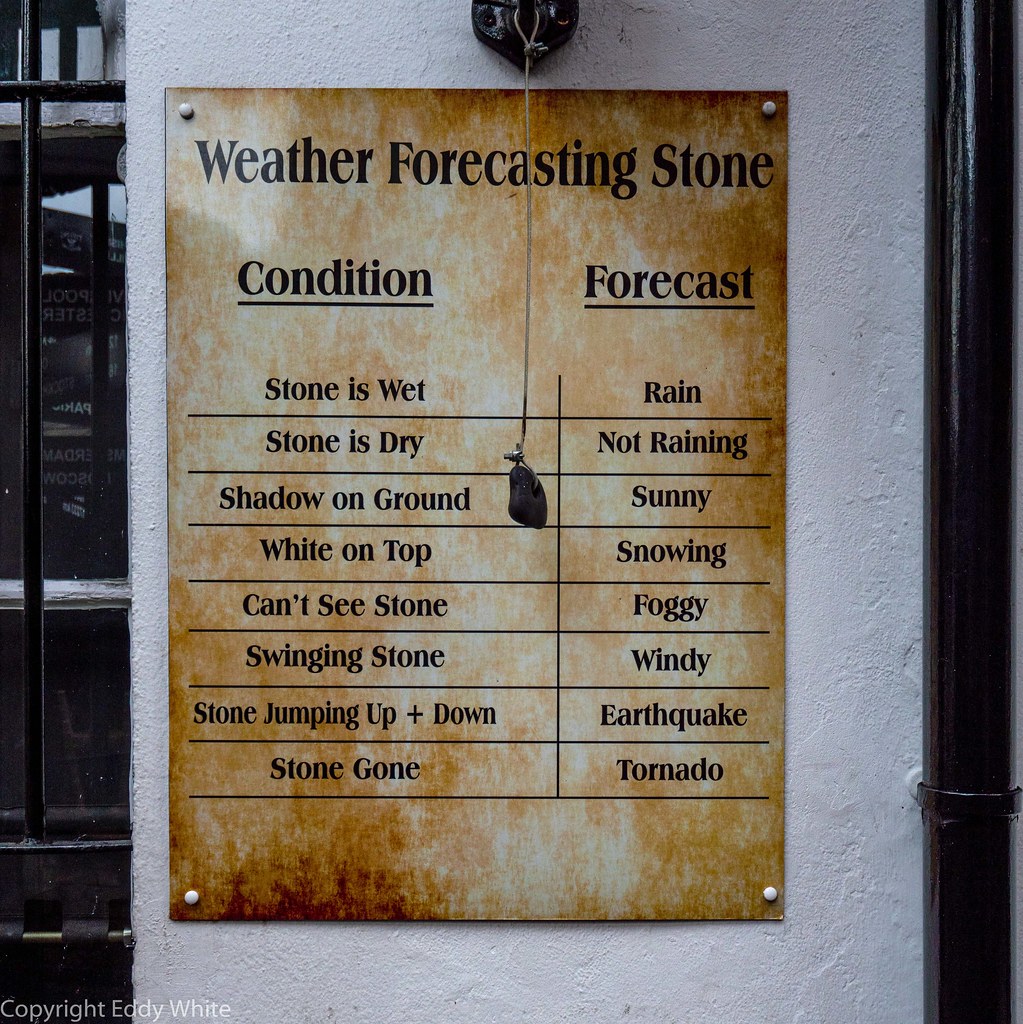 Weather Forecasting Stone
Condition Forecast
Stone is Wet Rain
Stone is Dry Not Raining
Shadow on Ground Sunny
White on Top Snowing
Can't See Stone Foggy
Swinging Stone Windy
Stone Jumping Up + Down Earthquake
Stone Gone Tornado
Copyright Eddy White